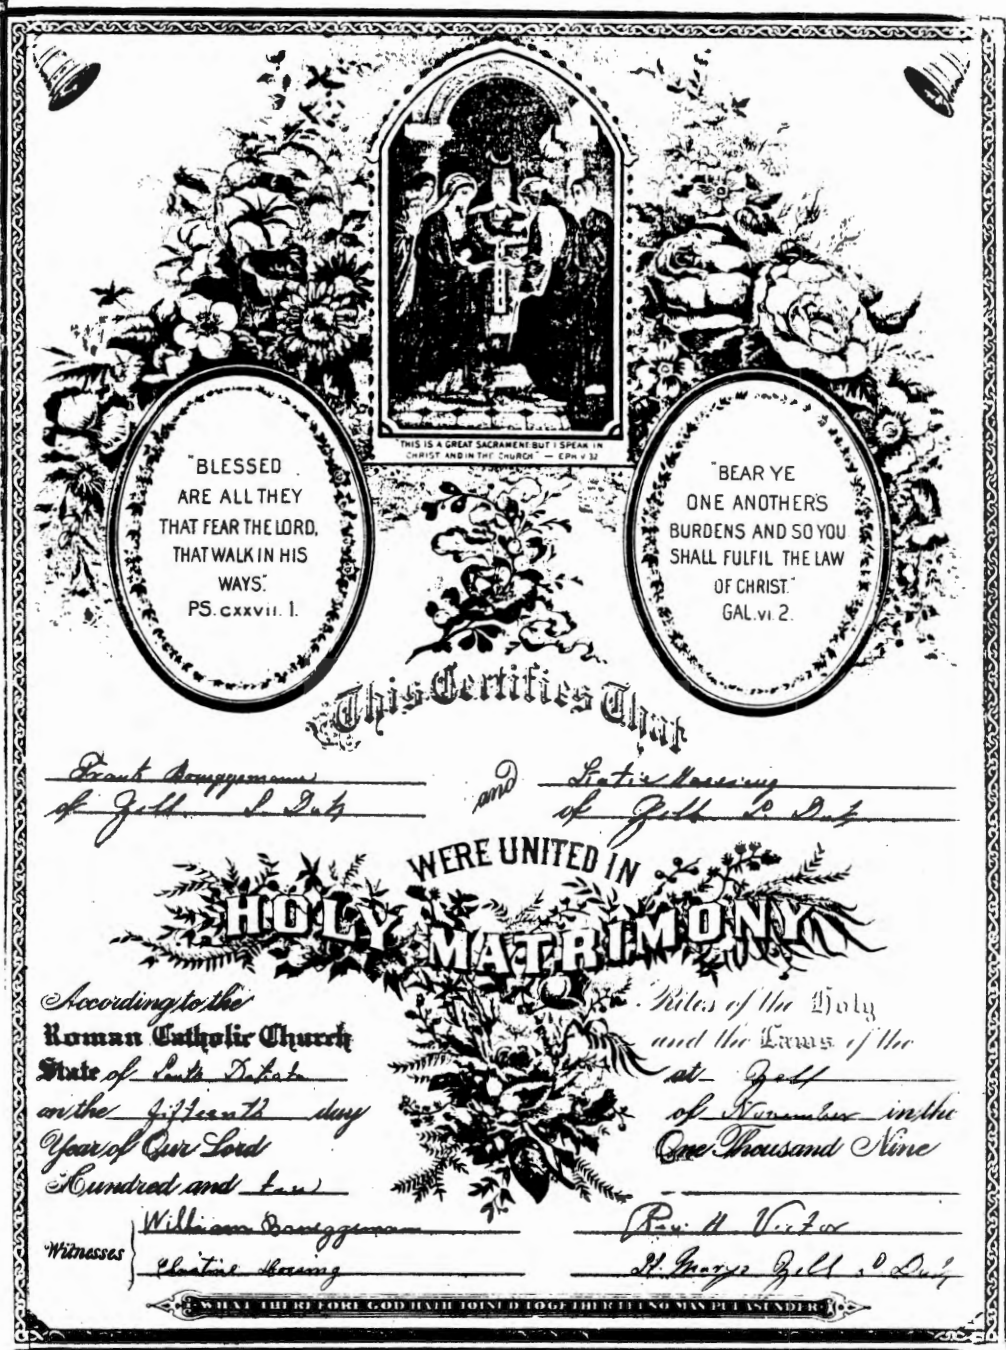 "THIS IS A GREAT SACRAMENT BUT I SPEAK IN
CHRIST AND IN THE CHURCH" — EPH. V 32
"BLESSED
ARE ALL THEY
THAT FEAR THE LORD,
THAT WALK IN HIS
WAYS."
PS. CXXVII. 1.
"BEAR YE
ONE ANOTHER'S
BURDENS AND SO YOU
SHALL FULFIL THE LAW
OF CHRIST."
GAL. VI. 2.
This Certifies That
Frank and
of Zell S. Dak of Zell S. Dak
WERE UNITED IN
HOLY MATRIMONY
According to the Rites of the Holy
Roman Catholic Church and the Laws of the
State of South Dakota at Zell
on the fifteenth day of November in the
Year of Our Lord One Thousand Nine
Hundred and ten
Witnesses
William Brueggemann Rev. H. Victor
Christine Hoesing St. Marys Zell S Dak
WHAT THEREFORE GOD HATH JOINED TOGETHER LET NO MAN PUT ASUNDER